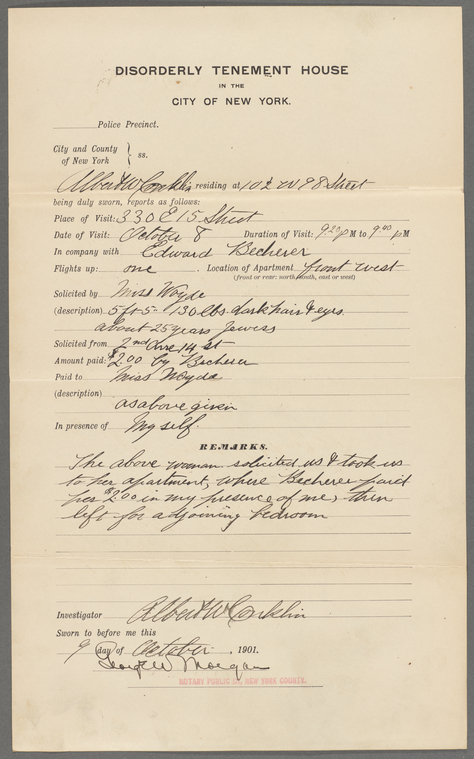 DISORDERLY TENEMENT HOUSE
IN THE
CITY OF NEW YORK.
Police Precinct.
City and County
of New York } ss.
Albert W Conklin residing at 102 W 98 Street
being duly sworn, reports as follows:
Place of Visit: 330 E 15 Street
Date of Visit: October 8 Duration of Visit: 9.20 PM to 9.40 PM
In company with Edward Becherer
Flights up: one Location of Apartment front west
(front or rear: north, south, east or west)
Solicited by Miss Woyda
(description) 5 ft 5- 130 lbs dark hair & eyes
about 25 years Jewess
Solicited from 2nd Ave 14 st
Amount paid: $2.00 by Becherer
Paid to Miss Woyda
(description)
as above given
In presence of My self.
REMARKS.
The above woman solicited us & took us
to her apartment, where Becherer paid
her $2.00 in my presence of me, then
left for adjoining bedroom
Investigator Albert W Conklin
Sworn to before me this
9 day of October, 1901.
George W Morgan
NOTARY PUBLIC NEW YORK COUNTY.